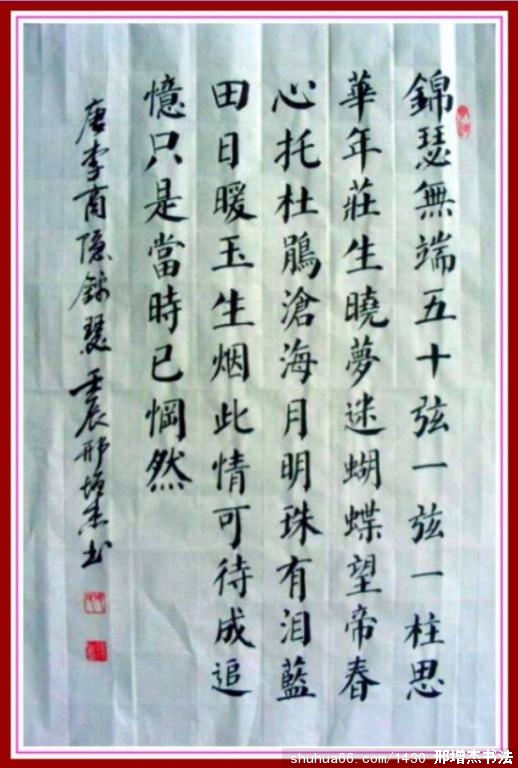 錦瑟無端五十弦一弦一柱思
華年莊生曉夢迷蝴蝶望帝春
心托杜鵑滄海月明珠有泪藍
田日暖玉生烟此情可待成追
憶只是當時已惘然
唐李商隱錦瑟壬辰邢增杰书
shuhua66.com/1430 邢增杰书法